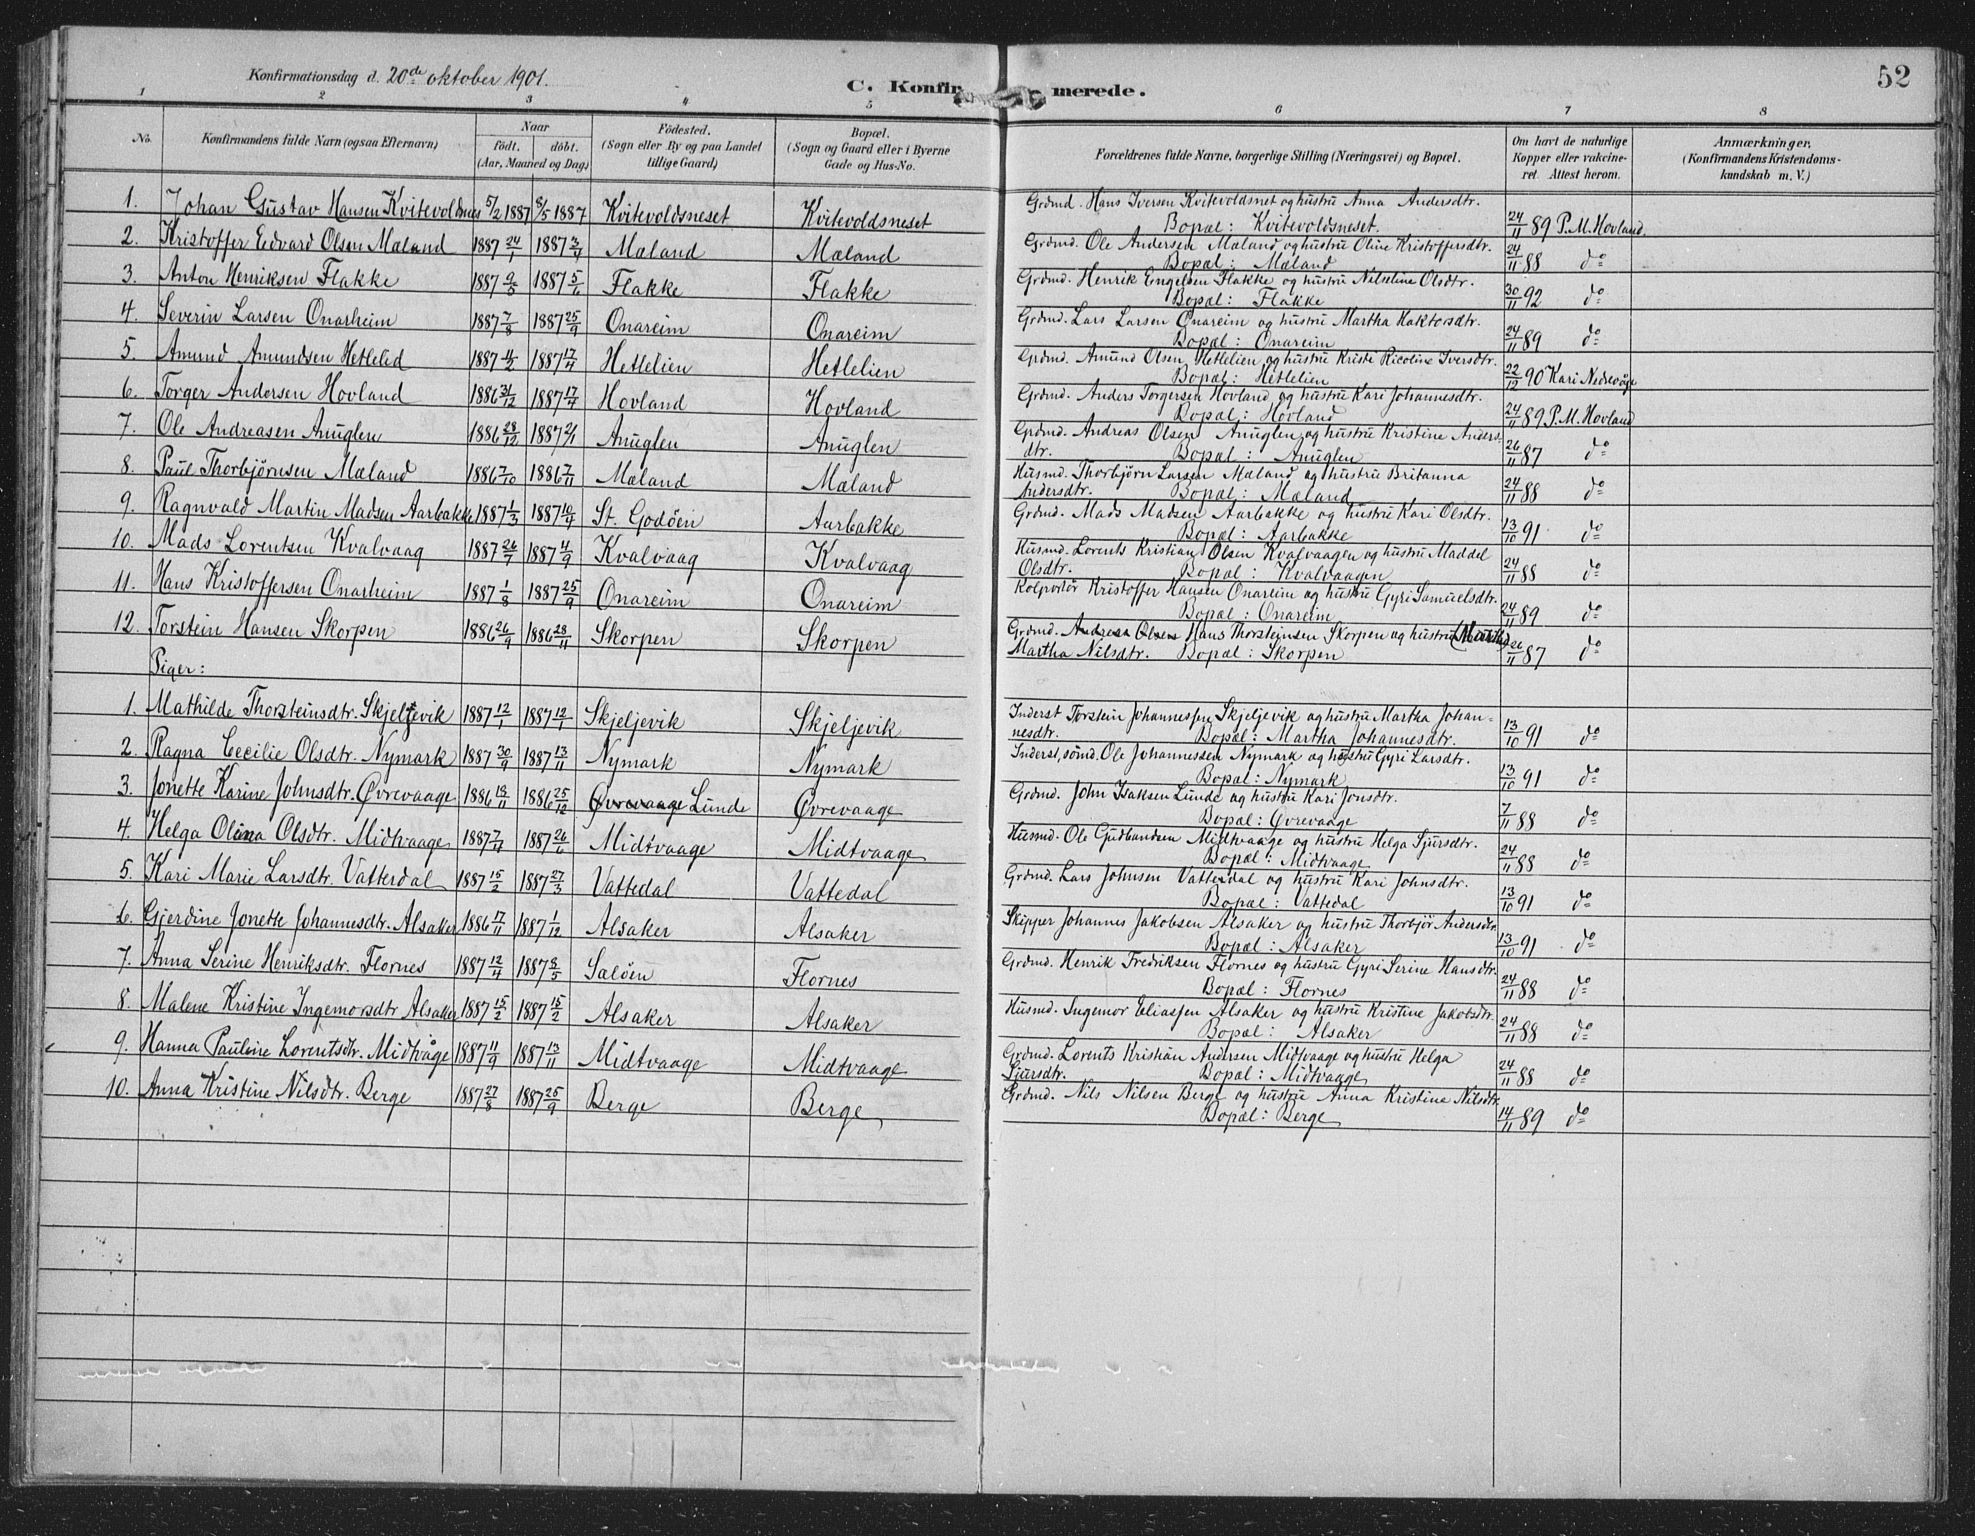 Konfirmationsdag d. 20de oktober 1901.
C. Konfir merede.
52
1 2 3 4 5 6 7 8
No. Konfirmandens fulde Navn (ogsaa Efternavn) Naar født. døbt. (Aar, Maaned og Dag) Fødested. (Sogn eller By og paa Landet tillige Gaard) Bopæl. (Sogn og Gaard eller i Byerne Gade og Hus-No. Forældrenes fulde Navne, borgerlige Stilling (Næringsvei) og Bopæl. Om havt de naturlige Kopper eller vakcineret. Attest herom. Anmærkninger, (Konfirmandens Kristendomskundskab m. V.)
1. Johan Gustav Hansen Kvitevoldsnes 5/2 1887 8/5 1887 Kvitevoldsneset Kvitevoldsneset Grdmd. Hans Iversen Kvitevoldsnet og hustru Anna Andersdtr.
Bopæl: Kvitevoldsneset. 24/11 89 P. M. Hovland
2. Kristoffer Edvard Olsen Mæland 1887 24/1 1887 3/4 Mæland Mæland Grdmd. Ole Andersen Mæland og hustru Oline Kristoffersdtr.
Bopæl: Mæland 24/11 88 do
3. Anton Henriksen Flakke 1887 2/5 1887 5/6 Flakke Flakke Grdmd. Henrik Engelsen Flakke og hustru Nilseline Olsdtr.
Bopæl: Flakke 30/11 92 do
4. Severin Larsen Onarheim 1887 7/8 1887 25/9 Onareim Onareim Grdmd. Lars Larsen Onareim og hustru Martha Haktorsdtr.
Bopæl: Onareim 24/11 89 do
5. Amund Amundsen Hetleled 1887 11/2 1887 17/4 Hetlelien Hetlelien Grdmd. Amund Olsen Hetlelien og hustru Kristi Ricoline Iversdtr.
Bopæl: Hetlelien 22/12 90 Kari Nedrevåge
6. Torger Andersen Hovland 1886 31/12 1887 17/4 Hovland Hovland Grdmd. Anders Torgersen Hovland og hustru Kari Johannesdtr.
Bopæl: Hovland 24/11 89 P. M. Hovland
7. Ole Andreasen Anuglen 1886 28/12 1887 2/1 Anuglen Anuglen Grdmd. Andreas Olsen Anuglen og hustru Kristine Anders-
dtr. Bopæl: Anuglen 26/11 87 do
8. Paul Thorbjørnsen Mæland 1886 7/10 1886 7/11 Mæland Mæland Husmd. Thorbjørn Larsen Mæland og hustru Britanna
Andersdtr. Bopæl: Mæland 24/11 88 do
9. Ragnvald Martin Madsen Aarbakke 1887 1/3 1887 10/4 St. Godøen Aarbakke Grdmd. Mads Madsen Aarbakke og hustru Kari Olsdtr.
Bopæl: Aarbakke 13/10 91 do
10. Mads Lorentsen Kvalvaag 1887 26/7 1887 4/9 Kvalvaag Kvalvaag Husmd. Lorents Kristian Olsen Kvalvaagen og hustru Maddel
Olsdtr. Bopæl: Kvalvaagen 24/11 88 do
11. Hans Kristoffersen Onarheim 1887 1/8 1887 25/9 Onareim Onareim Kolportør Kristoffer Hansen Onareim og hustru Gyri Samuelsdtr.
Bopæl: Onareim 24/11 89 do
12. Torstein Hansen Skorpen 1886 26/9 1886 28/11 Skorpen Skorpen Grdmd. Andreas Olsen Hans Thorsteinsen Skorpen og hustru
Martha Nilsdtr. Bopæl: Skorpen 26/11 87 do
Piger:
1. Mathilde Thorsteinsdtr. Skjeljevik 1887 12/1 1887 12/1 Skjeljevik Skjeljevik Inderst Torstein Johannessen Skjeljevik og hustru Martha Johan-
nesdtr. Bopæl: Martha Johannesdtr. 13/10 91 do
2. Ragna Cecilie Olsdtr. Nymark 1887 30/9 1887 13/11 Nymark Nymark Inderst, sømd. Ole Johannessen Nymark og hustru Gyri Larsdtr.
Bopæl: Nymark 13/10 91 do
3. Jonette Karine Johnsdtr. Øvrevaage 1886 18/11 1886 25/12 Øvrevaage Lunde Øvrevaage Grdmd. John Isaksen Lunde og hustru Kari Jonsdtr.
Bopæl: Øvrevaage 7/11 88 do
4. Helga Olina Olsdtr. Midtvaage 1887 7/4 1887 26/6 Midtvaage Midtvaage Husmd. Ole Gudbandsen Midtvaage og hustru Helga Sjursdtr.
Bopæl: Midtvaage 24/11 88 do
5. Kari Marie Larsdtr. Vatterdal 1887 15/2 1887 27/3 Vattedal Vattedal Grdmd. Lars Johnsen Vatterdal og hustru Kari Johnsdtr.
Bopæl: Vattedal 13/10 91 do
6. Gjerdine Jonette Johannesdtr. Alsaker 1886 17/11 1887 1/12 Alsaker Alsaker Skipper Johannes Jakobsen Alsaker og hustru Thorbjør Andersdtr.
Bopæl: Alsaker 13/10 91 do
7. Anna Serine Henriksdtr. Flornes 1887 12/4 1887 8/5 Saløen Flornes Grdmd. Henrik Fredriksen Flornes og hustru Gyri Serine Hansdtr.
Bopæl: Flornes 24/11 88 do
8. Malene Kristine Ingemorsdtr Alsaker 1887 15/2 1887 15/2 Alsaker Alsaker Husmd. Ingemor Eliassen Alsaker og hustru Kristine Jakobsdtr.
Bopæl: Alsaker 24/11 88 do
9. Hanna Pauline Lorentsdtr. Midtvåge 1887 11/9 1887 13/11 Midtvaage Midtvaage Grdmd. Lorents Kristian Andersen Midtvaage og hustru Helga
Sjursdtr. Bopæl: Midtvaage 24/11 88 do
10. Anna Kristine Nilsdtr. Berge 1887 27/8 1887 25/9 Berge Berge Grdmd. Nils Nilsen Berge og hustru Anna Kristine Nilsdtr.
Bopæl: Berge 14/11 89 do